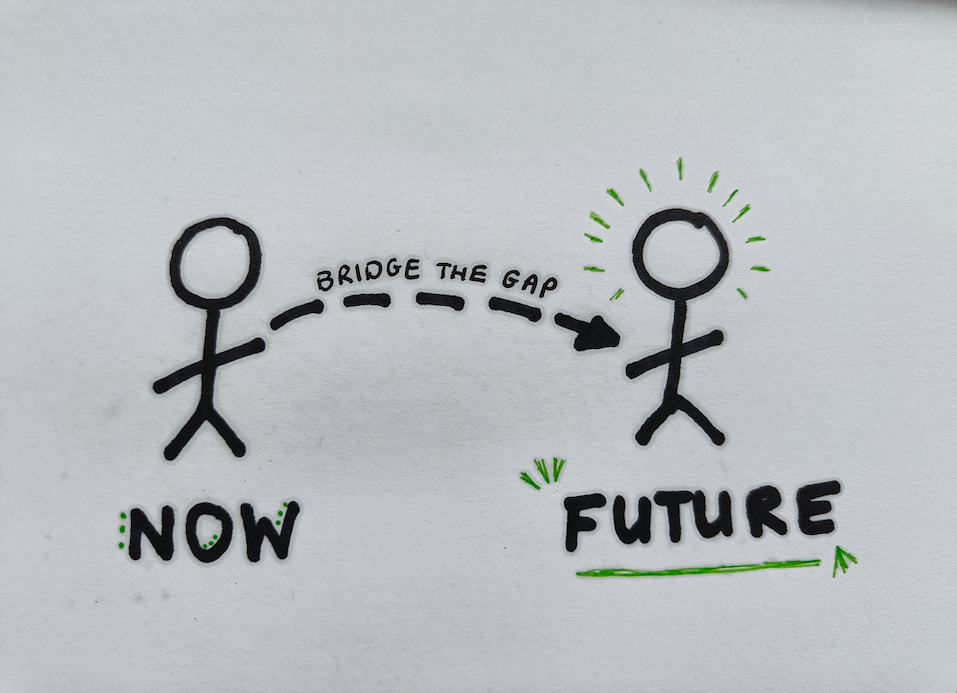 BRIDGE THE GAP
NOW
FUTURE